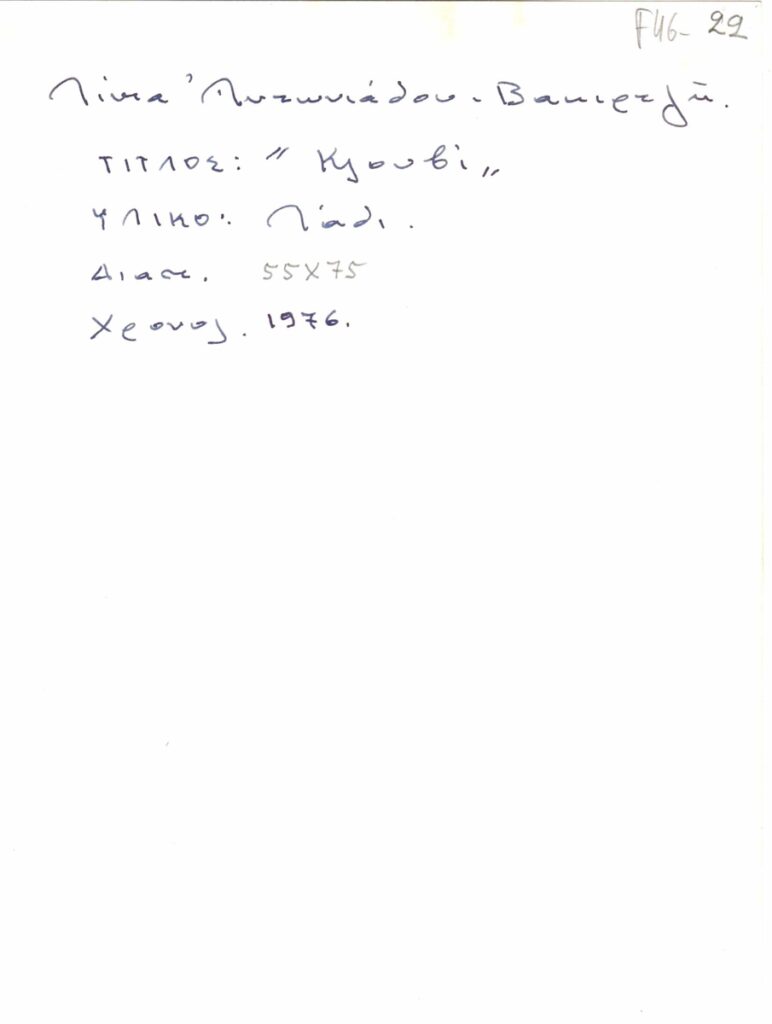 F46- 29
Λίνα Ἀντωνιάδου - Βακιρτζῆ.
ΤΙΤΛΟΣ: " Κλουβί „
ΥΛΙΚΟ: Λάδι.
Διαστ. 55Χ75
Χρονολ. 1976.